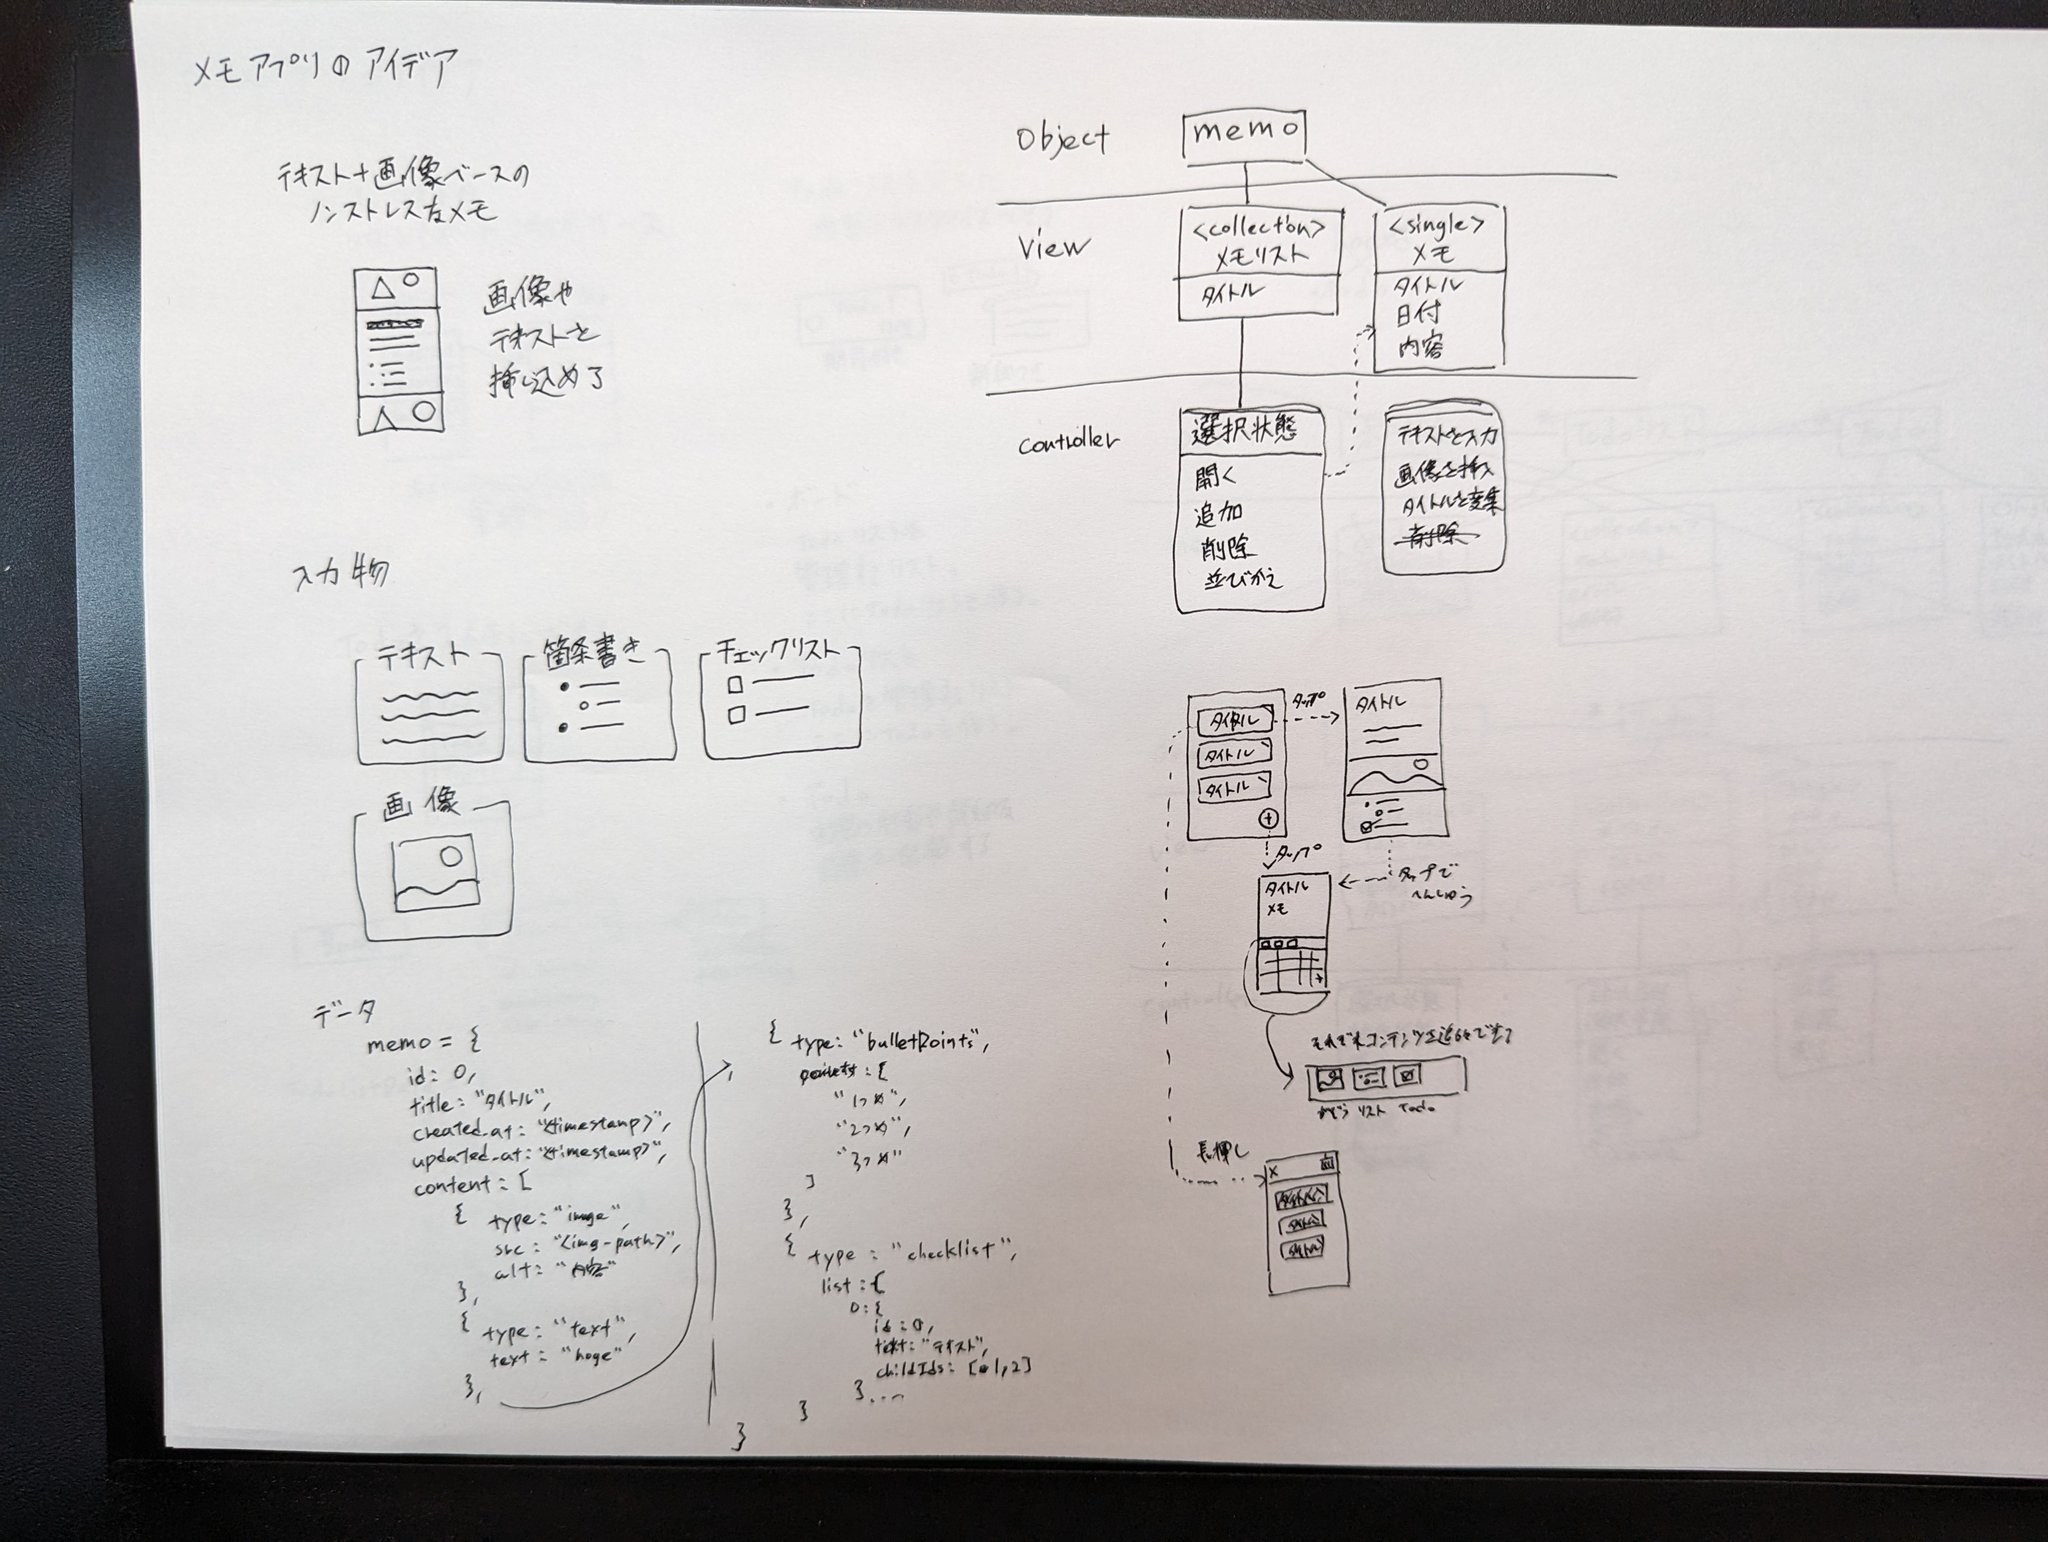 メモアプリのアイデア
テキスト+画像ベースの
ノンストレスなメモ
画像や
テキストを
挿し込める
入力物
テキスト
箇条書き
チェックリスト
画像
データ
memo = {
id: 0,
title: "タイトル",
created_at: "<timestamp>",
updated_at: "<timestamp>",
content: [
{ type: "image",
src: "<img-path>",
alt: "内容"
},
{ type: "text",
text: "hoge"
},
{ type: "bulletPoints",
"1つめ",
"2つめ",
"3つめ"
]
},
{ type: "checklist",
list: {
0: {
id: 0,
text: "テキスト",
childIds: [1, 2]
}...
}
}
Object
memo
View
<collection>
メモリスト
タイトル
<single>
メモ
タイトル
日付
内容
controller
選択状態
開く
追加
削除
並びかえ
テキストを入力
画像を挿入
タイトルを変集
削除
タイトル
タイトル
タイトル
タップ
タイトル
タップ
タップで
へんしゅう
タイトル
メモ
それぞれコンテンツを追加できる
がぞう リスト Todo
長押し
x
タイトル
タイトル
タイトル